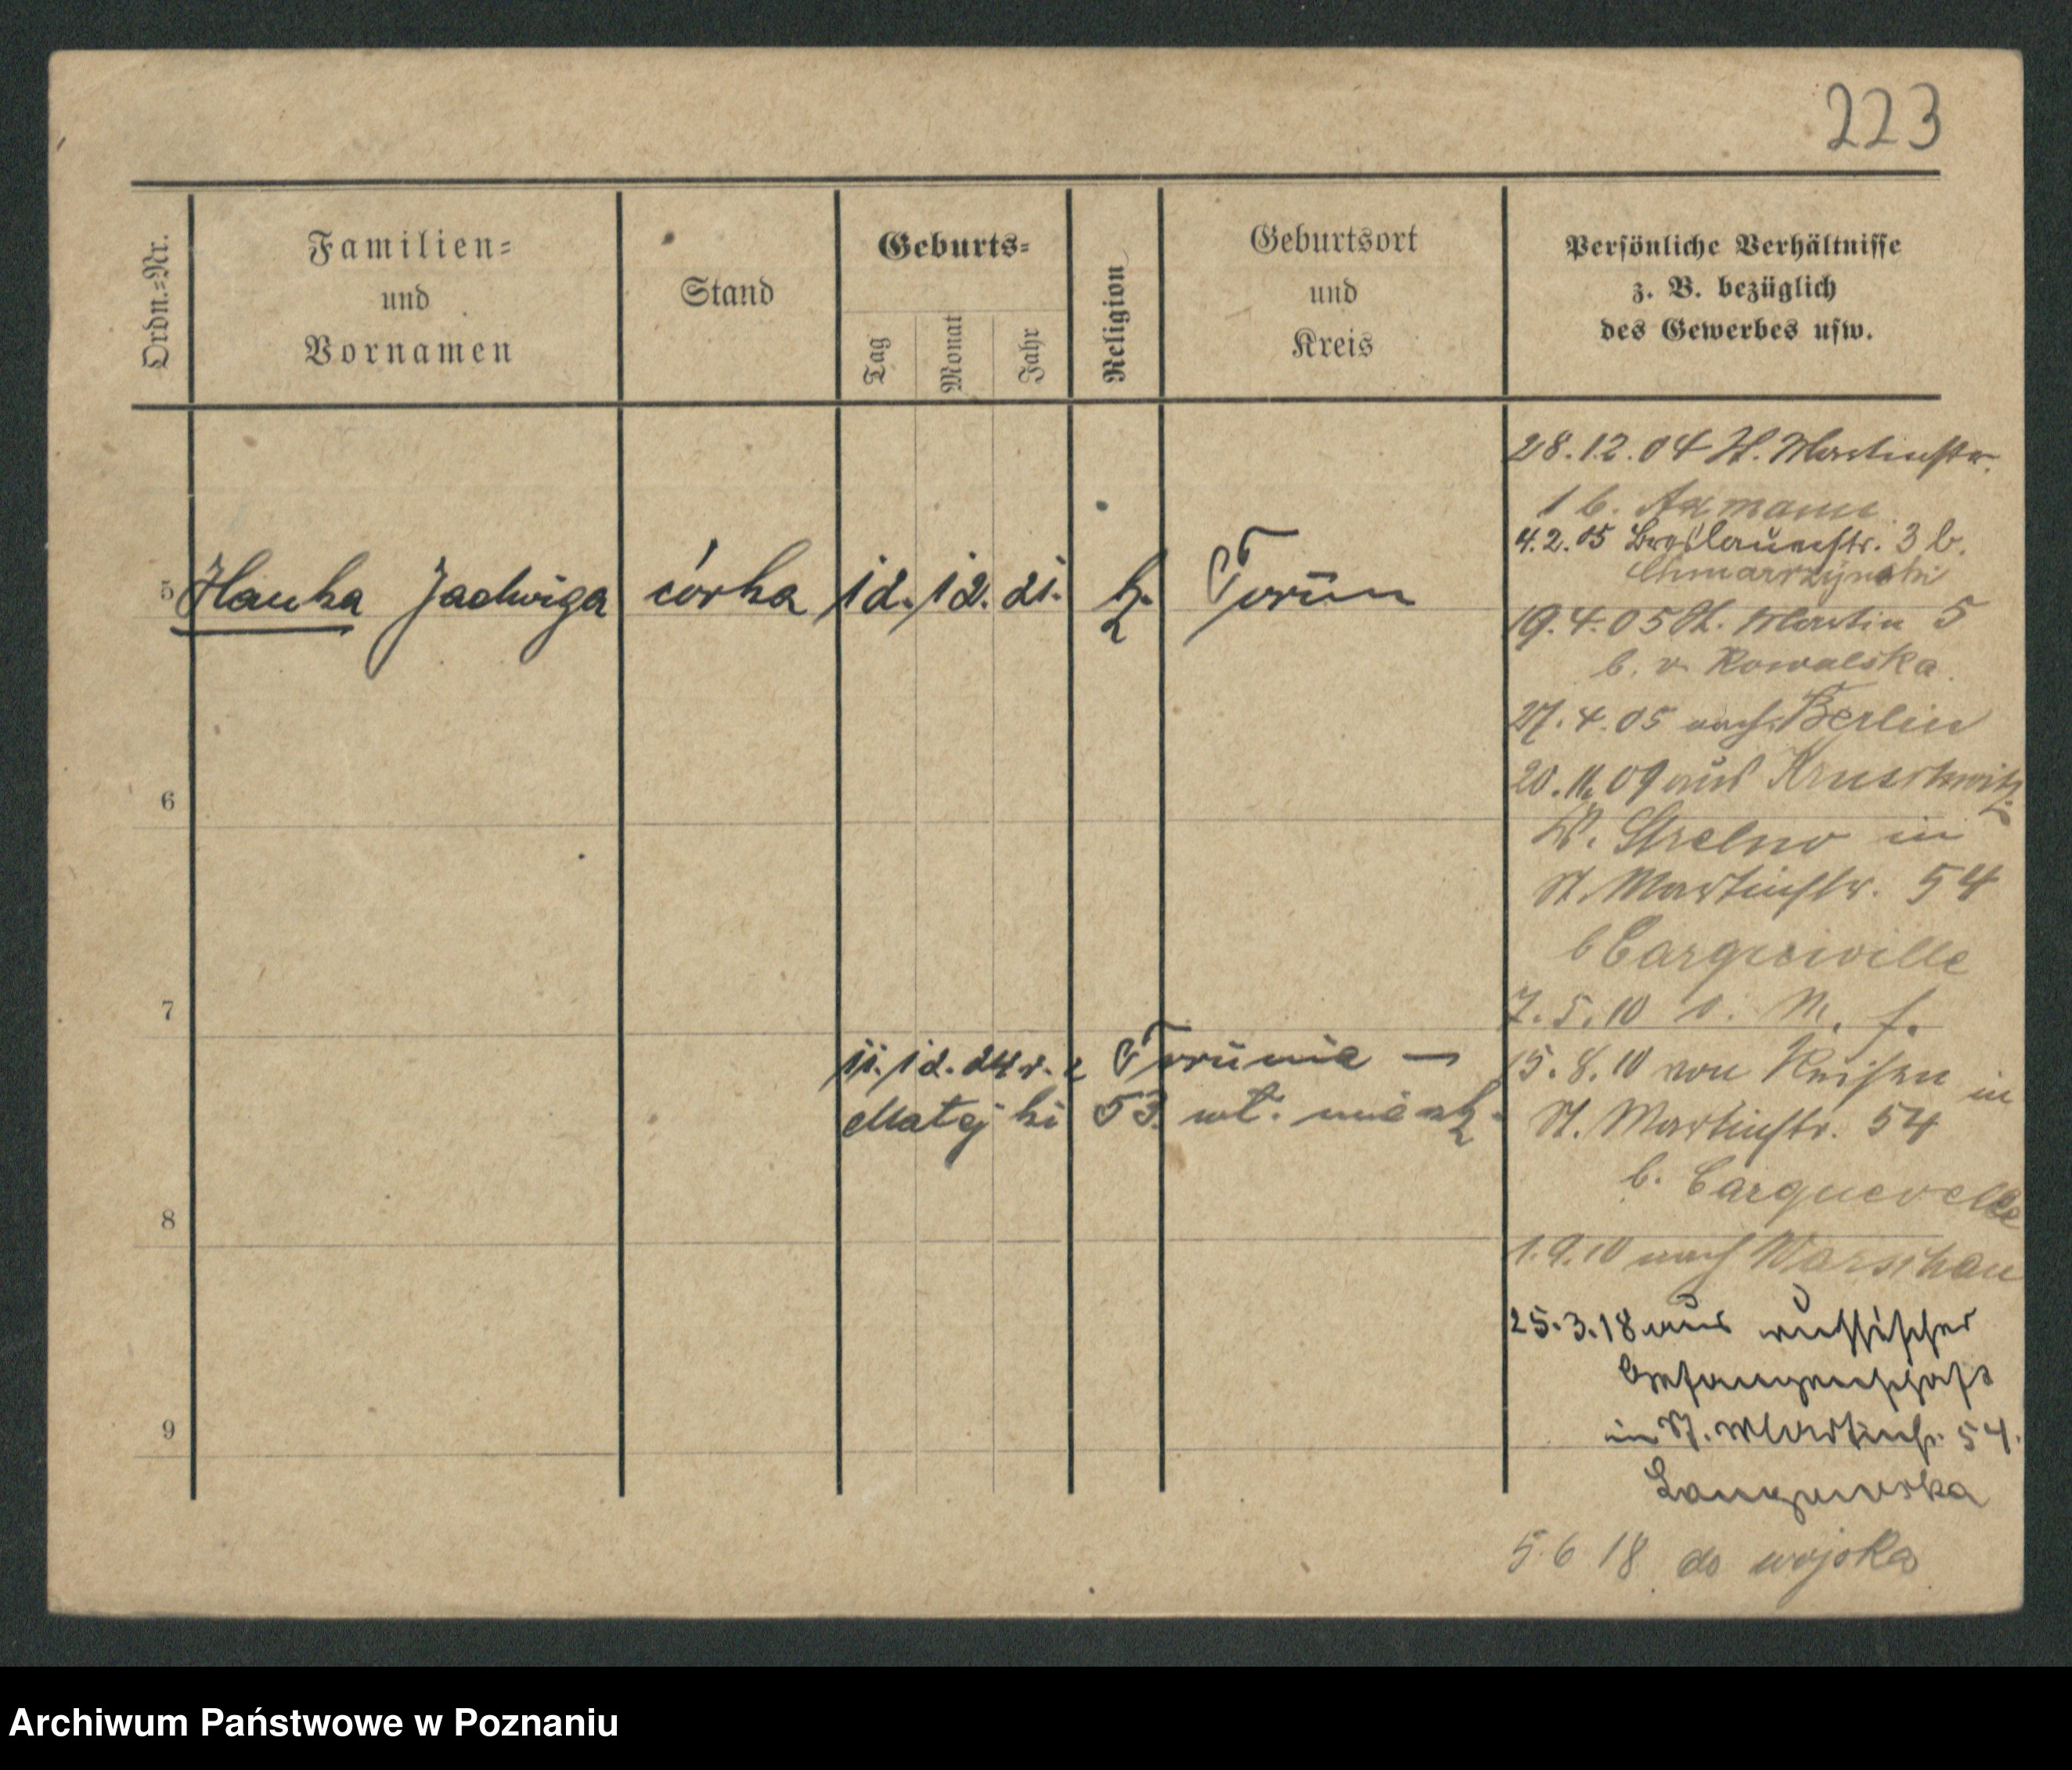 223
Ordn.=Nr.
Familien=
und
Vornamen
Stand
Geburts=
Tag
Monat
Jahr
Religion
Geburtsort
und
Kreis
Persönliche Verhältnisse
z. B. bezüglich
des Gewerbes usw.
28.12.04 St. Martinstr.
1 b. Axmann
4.2.05 Breslauerstr. 3 b.
Chmarzyński
5 Hanka Jadwiga córka 12. 12. 21. k. Toruń
19.4.05 St. Martin 5
b. v. Kowalska
27.4.05 nach Berlin
20.11.09 aus Kruschwitz
6
Kr. Strelno in
St. Martinstr. 54
b Carqueville
7
7.5.10 v. N. f.
11. 12. 24 r. z Torunia —
15.8.10 von Reisen in
Matejki 53. wł. mieszk.
St. Martinstr. 54
b. Carqueville
8
1.9.10 nach Warschau
25.3.18 aus russischer
Gefangenschaft
9
in St. Martinstr. 54.
5.6 18 do wojska
Archiwum Państwowe w Poznaniu